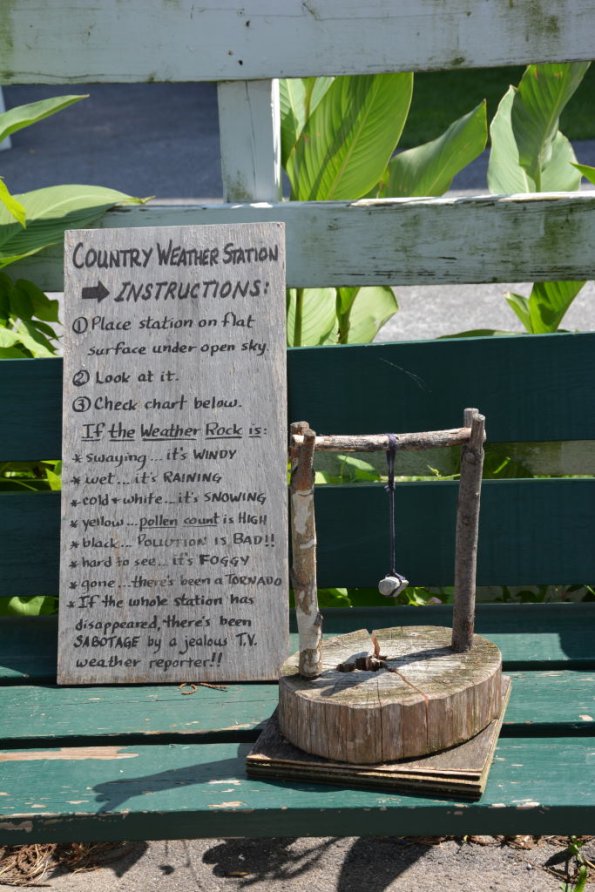 COUNTRY WEATHER STATION
➡ INSTRUCTIONS:
① Place station on flat
surface under open sky
② Look at it.
③ Check chart below.
If the Weather Rock is:
* swaying...it's WINDY
* wet...it's RAINING
* cold + white...it's SNOWING
* yellow...pollen count is HIGH
* black... POLLUTION IS BAD!!
* hard to see...it's FOGGY
* gone...there's been a TORNADO
* If the whole station has
disappeared, there's been
SABOTAGE by a jealous T.V.
weather reporter!!